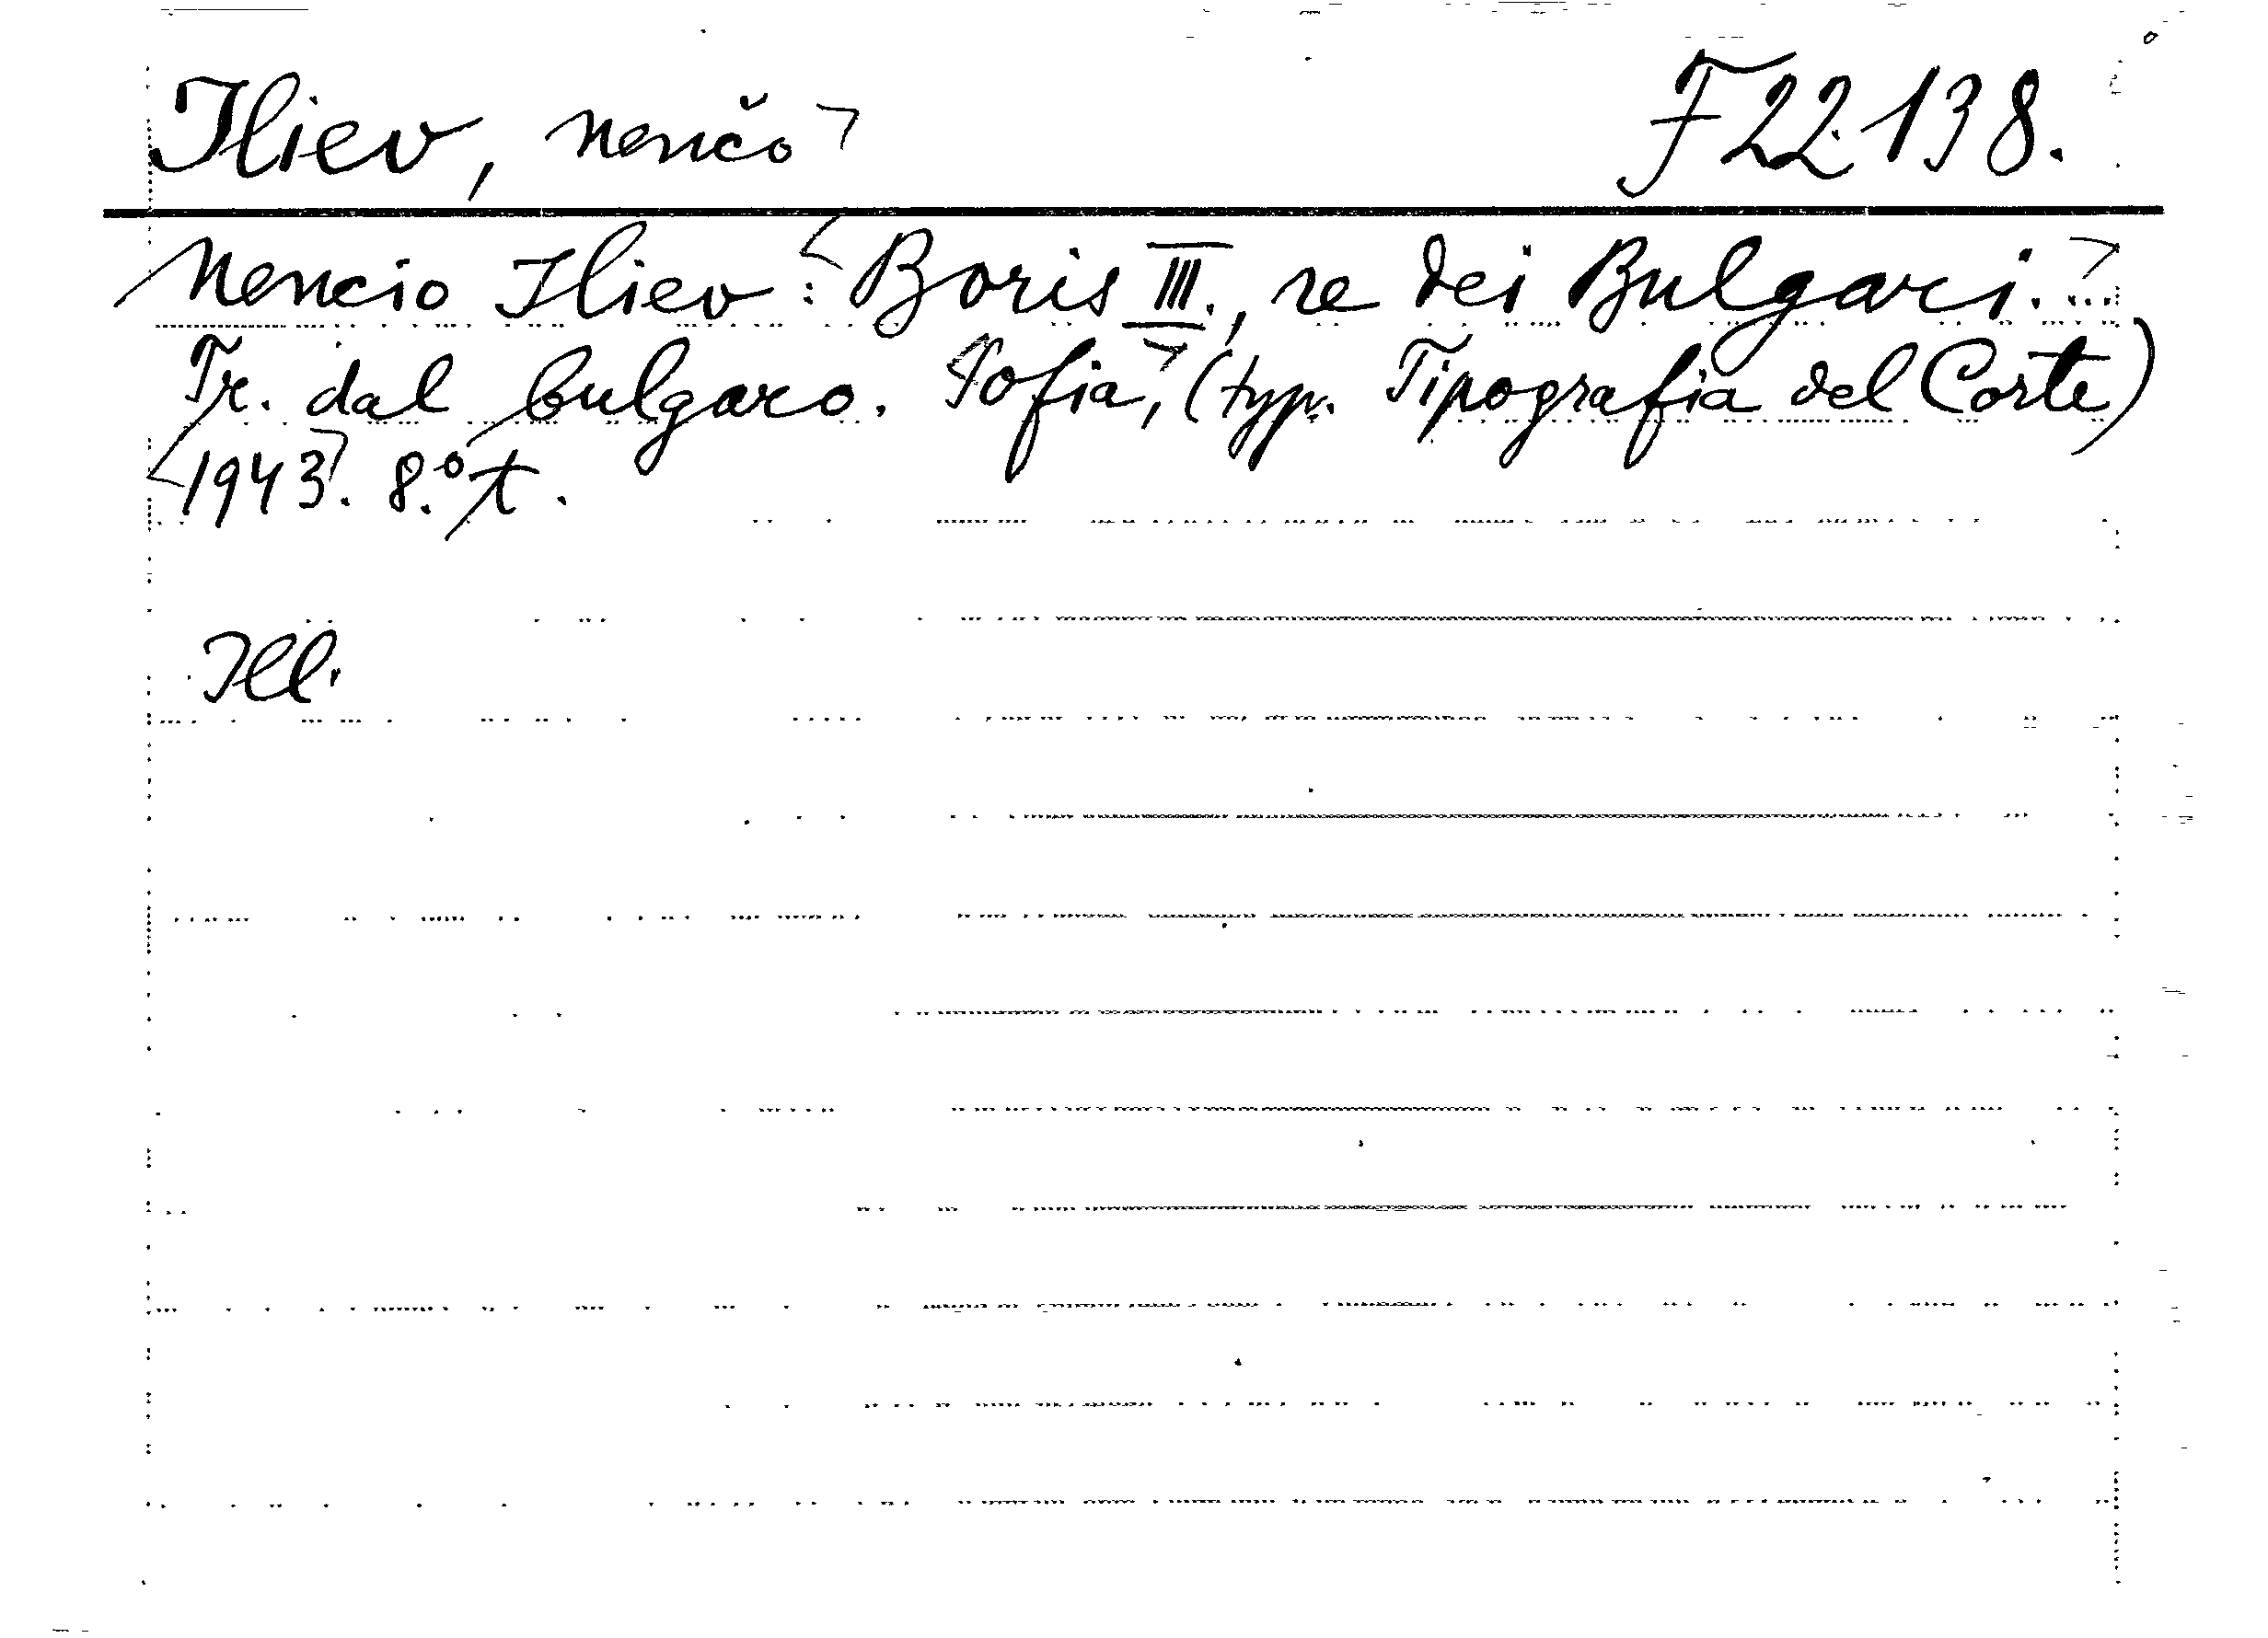 Iliev, Nenčo F 22.138.
Nencio Iliev: Boris III., re dei Bulgari. ...
Tr. dal bulgaro. Sofia, (typ. Tipografia del Corte)
1943. 8.° t.
Ill.